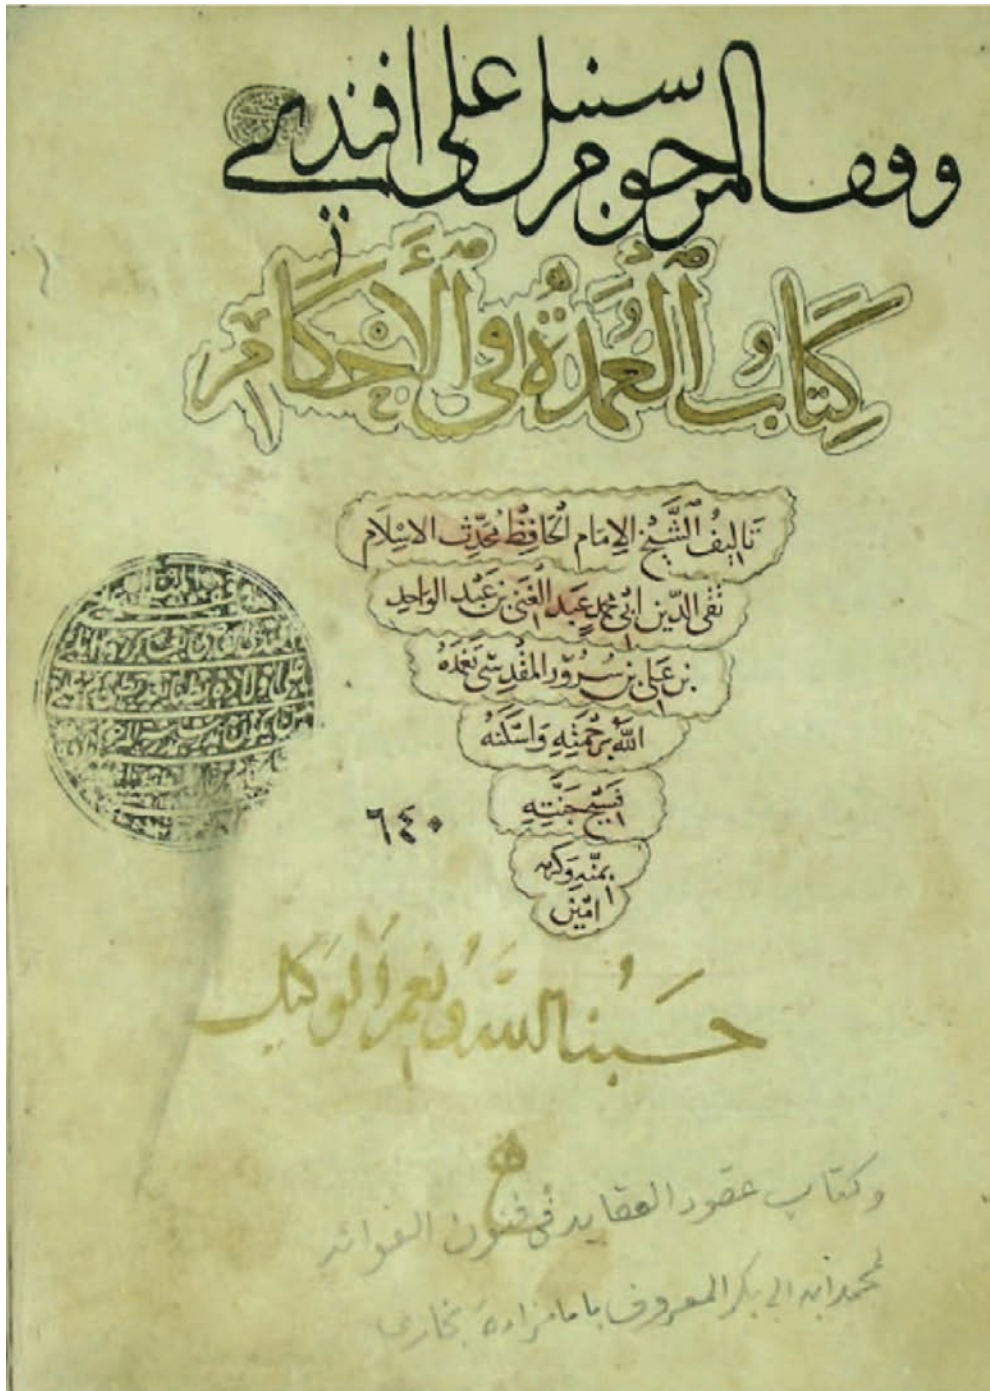 وقف المرحوم سنبل علي افندي
كِتَابُ ٱلْعُمْدَةُ فِي ٱلْأَحْكَامِ
تَاليفُ ٱلشَّيْخ الإِمَام الْحَافِظْ مُحَدِّث الاسْلَام
تقى الدّين ابى محمد عَبد الْغَنى بن عَبْد الوَاحِدِ
بن عَلى بن سُرُوْر المقْدِسِّى تغمّدهُ
اللهُ برَحْمَتِهِ وَاسْكَنَهُ
فَسِيْح جَنَّتِهِ
بمنّه وَكرمه
امِيْن
٦٤٠
حَسْبُنا اللَّه وَنعمَ الوَكيل
وكتاب عقود العقايد فى فنون الفوائد
لمحمد ابن ابى بكر المعروف بامامزاده بخارى